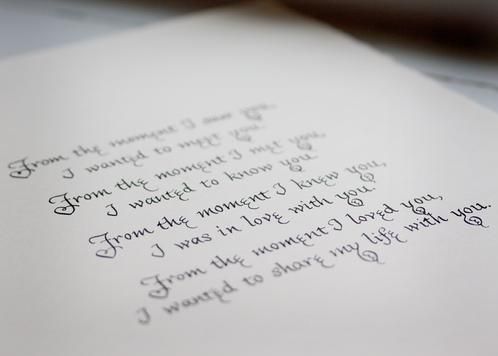 From the moment I saw you,
I wanted to meet you.
From the moment I met you,
I wanted to know you.
From the moment I knew you,
I was in love with you.
From the moment I loved you,
I wanted to share my life with you.